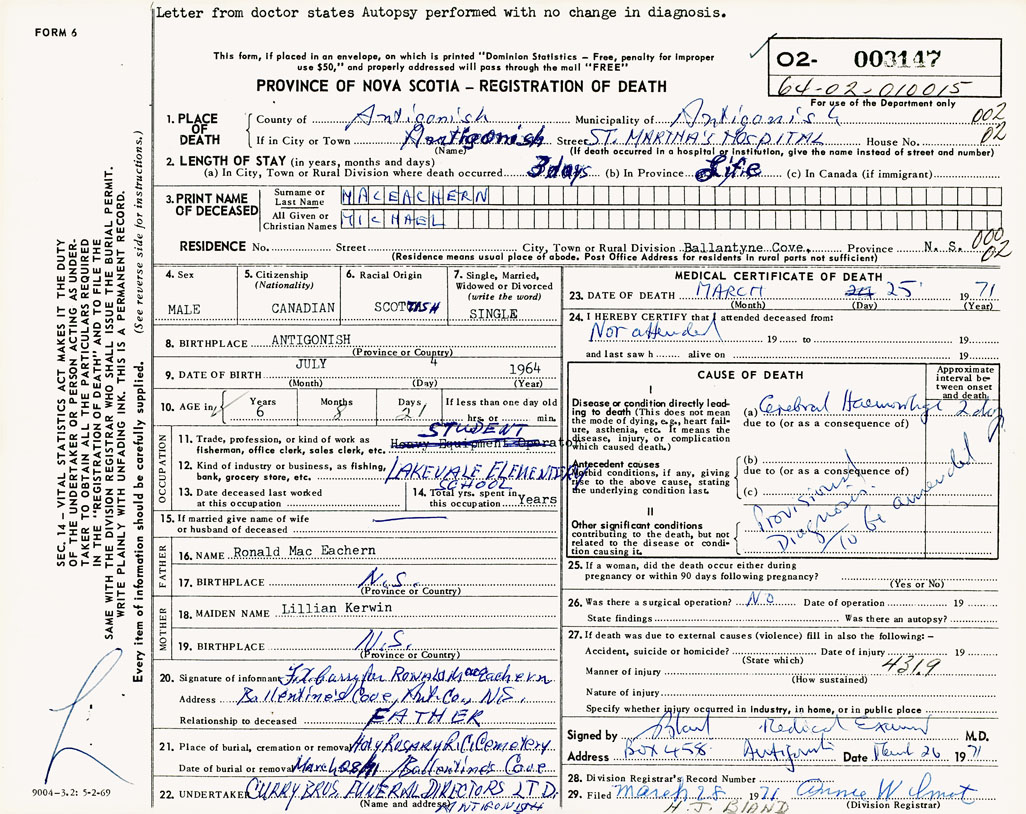 Letter from doctor states Autopsy performed with no change in diagnosis.
FORM 6
This form, if placed in an envelope, on which is printed "Dominion Statistics – Free, penalty for improper
use $50," and properly addressed will pass through the mail "FREE"
PROVINCE OF NOVA SCOTIA – REGISTRATION OF DEATH
02- 003147
64-02-010015
For use of the Department only
1. PLACE OF DEATH County of Antigonish Municipality of Antigonish 002
If in City or Town Antigonish Street ST. MARTHA'S HOSPITAL House No. 02
(Name) (If death occurred in a hospital or institution, give the name instead of street and number)
2. LENGTH OF STAY (in years, months and days)
(a) In City, Town or Rural Division where death occurred 3 days (b) In Province Life (c) In Canada (if immigrant)
3. PRINT NAME OF DECEASED Surname or Last Name MACEACHERN
All Given or Christian Names MICHAEL
RESIDENCE No. Street City, Town or Rural Division Ballantyne Cove, Province N. S. 000
02
(Residence means usual place of abode. Post Office Address for residents in rural parts not sufficient)
4. Sex
MALE
5. Citizenship
(Nationality)
CANADIAN
6. Racial Origin
SCOTTISH
7. Single, Married,
Widowed or Divorced
(write the word)
SINGLE
8. BIRTHPLACE ANTIGONISH
(Province or Country)
9. DATE OF BIRTH JULY 4 1964
(Month) (Day) (Year)
10. AGE in Years Months Days If less than one day old
6 8 21 hrs. or min.
OCCUPATION
STUDENT
11. Trade, profession, or kind of work as Heavy Equipment Operator
fisherman, office clerk, sales clerk, etc.
12. Kind of industry or business, as fishing, LAKEVALE ELEMENTERY
bank, grocery store, etc. SCHOOL
13. Date deceased last worked
at this occupation
14. Total yrs. spent in
this occupation Years
15. If married give name of wife
or husband of deceased
FATHER
16. NAME Ronald Mac Eachern
17. BIRTHPLACE N.S.
(Province or Country)
MOTHER
18. MAIDEN NAME Lillian Kerwin
19. BIRTHPLACE N.S.
(Province or Country)
20. Signature of informant for RONALD MacEachern
Address Ballentine's Cove, Ant. Co., N.S.
Relationship to deceased FATHER
21. Place of burial, cremation or removal Holy Rosary R.C. Cemetery
Date of burial or removal March 28/71 Ballentine's Cove
22. UNDERTAKER CURRY BROS. FUNERAL DIRECTORS LTD.
(Name and address) ANTIGONISH
MEDICAL CERTIFICATE OF DEATH
23. DATE OF DEATH MARCH 24 25 1971
(Month) (Day) (Year)
24. I HEREBY CERTIFY that I attended deceased from:
Not attended 19 to 19
and last saw h alive on 19
CAUSE OF DEATH
Approximate
interval be-
tween onset
and death
I
Disease or condition directly lead-
ing to death (This does not mean
the mode of dying, e.g., heart fail-
ure, asthenia, etc. It means the
disease, injury, or complication
which caused death.)
(a) Cerebral Haemorrhage 2 days
due to (or as a consequence of)
Antecedent causes
Morbid conditions, if any, giving
rise to the above cause, stating
the underlying condition last.
(b)
due to (or as a consequence of)
(c)
II
Other significant conditions
contributing to the death, but not
related to the disease or condi-
tion causing it.
Provisional
Diagnosis.
To be amended
25. If a woman, did the death occur either during
pregnancy or within 90 days following pregnancy?
(Yes or No)
26. Was there a surgical operation? NO Date of operation 19
State findings Was there an autopsy?
27. If death was due to external causes (violence) fill in also the following: –
Accident, suicide or homicide? Date of injury 19
(State which)
Manner of injury 431.9
(How sustained)
Nature of injury
Specify whether injury occurred in industry, in home, or in public place
Signed by Bland Medical Examr M.D.
Address Box 458 Antigonish Date March 26 1971
28. Division Registrar's Record Number
29. Filed March 28 1971 Annie Wilmot
H. J. BLAND (Division Registrar)
SEC. 14 – VITAL STATISTICS ACT MAKES IT THE DUTY
OF THE UNDERTAKER OR PERSON ACTING AS UNDER-
TAKER TO OBTAIN ALL THE PARTICULARS REQUIRED
IN THE "REGISTRATION OF DEATH" AND TO FILE THE
SAME WITH THE DIVISION REGISTRAR WHO SHALL ISSUE THE BURIAL PERMIT.
WRITE PLAINLY WITH UNFADING INK. THIS IS A PERMANENT RECORD.
Every item of information should be carefully supplied. (See reverse side for instructions.)
9004-3.2: 5-2-69